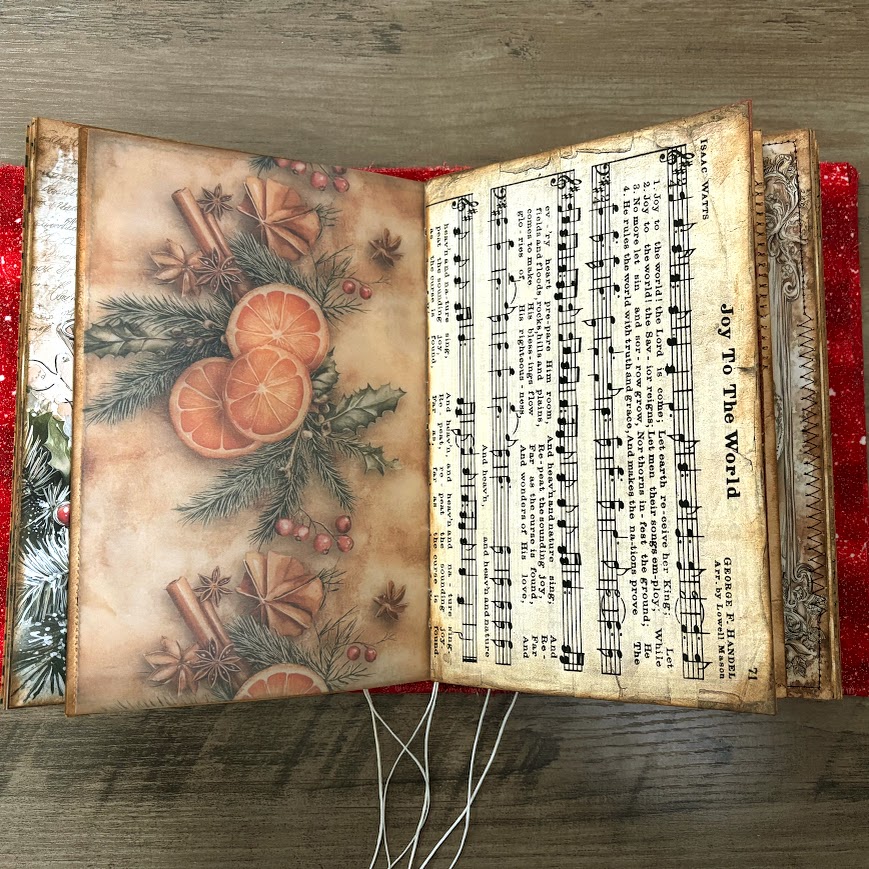 71
Joy To The World
ISAAC WATTS
GEORGE F. HANDEL
Arr. by Lowell Mason
1. Joy to the world! the Lord is come; Let earth re-ceive her King; Let
2. Joy to the world! the Sav - ior reigns; Let men their songs em-ploy; While
3. No more let sin and sor - row grow, Nor thorns in - fest the ground, He
4. He rules the world with truth and grace, And makes the na-tions prove The
ev - 'ry heart pre-pare Him room, And heav'n and nature sing, And
fields and floods, rocks, hills and plains, Re-peat the sounding joy, Re-
comes to make His bless-ings flow Far as the curse is found, Far
glo - ries of His righteous-ness, And wonders of His love, And
And heav'n, and heav'n and nature
heav'n and na-ture sing, And heav'n and heav'n and na - ture sing.
peat the sounding joy, Re-peat, re-peat the sounding joy.
as the curse is found, Far as, far as the curse is found.